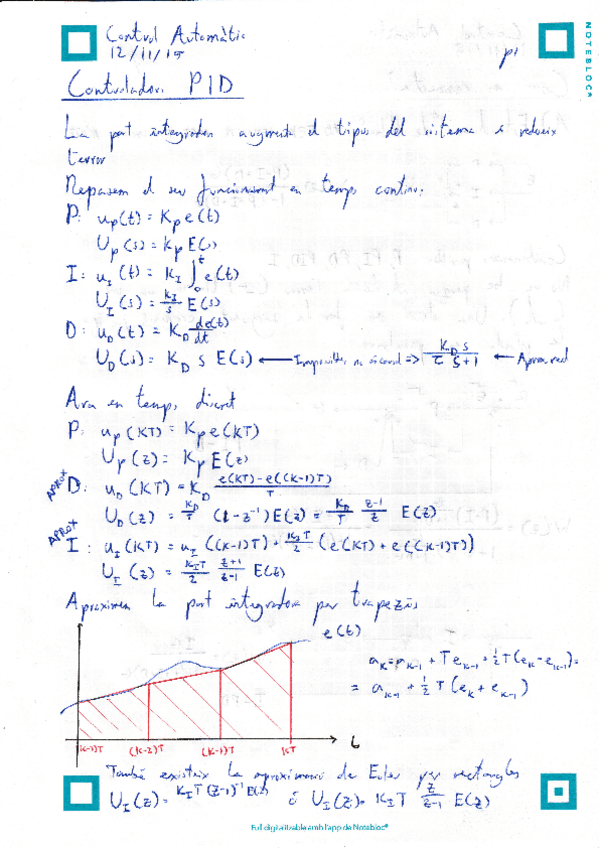 NOTEBLOC®
Control Automàtic
12/11/15
p1
Controladors PID
La part integradora augmenta el tipus del sistema i redueix
l'error
Repasem el seu funcionament en temps continu:
P: u_P(t) = K_P e(t)
U_P(s) = K_P E(s)
I: u_I(t) = K_I ∫_0^t e(t)
U_I(s) = K_I/s E(s)
D: u_D(t) = K_D de(t)/dt
U_D(s) = K_D s E(s) ← Impossible => K_D s/(τ s+1) ← Aprox real
Ara en temps discret
P: u_P(KT) = K_P e(KT)
U_P(z) = K_P E(z)
APROX D: u_D(KT) = K_D (e(KT)-e((K-1)T))/T
U_D(z) = K_D/T (1-z^-1)E(z) = K_D/T (z-1)/z E(z)
APROX I: u_I(KT) = u_I((K-1)T) + K_I T/2 (e(KT) + e((K-1)T))
U_I(z) = K_I T/2 (z+1)/(z-1) E(z)
Aproximem la part integradora per trapezis
e(t)
a_K = a_K-1 + T e_K-1 + ½ T(e_K - e_K-1) =
= a_K-1 + ½ T (e_K + e_K-1)
(K-3)T (K-2)T (K-1)T KT t
També existeix la aproximació de Euler per rectangles
U_I(z) = K_I T (z-1)^-1 E(z) ó U_I(z) = K_I T z/(z-1) E(z)
Full digitalitzable amb l'app de Notebloc®